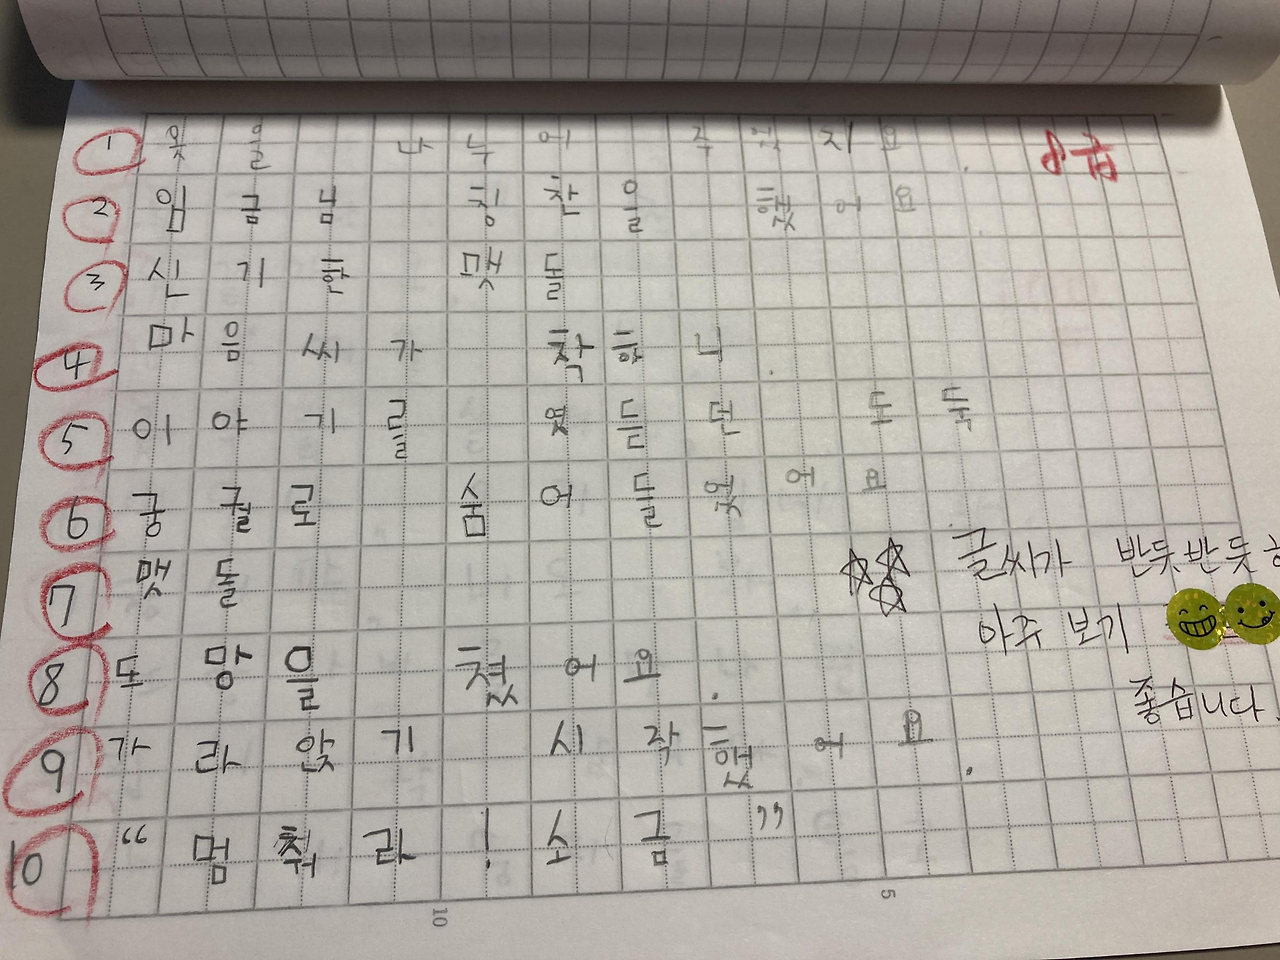 1 옷을 나누어 주었지요.
2 임금님 칭찬을 했어요
3 신기한 맷돌
4 마음씨가 착하니.
5 이야기를 엿듣던 도둑
6 궁궐로 숨어들었어요
7 맷돌
8 도망을 쳤어요.
9 가라앉기 시작했어요.
10 “멈춰라! 소금”
글씨가 반듯반듯
아주 보기
좋습니다
10
5